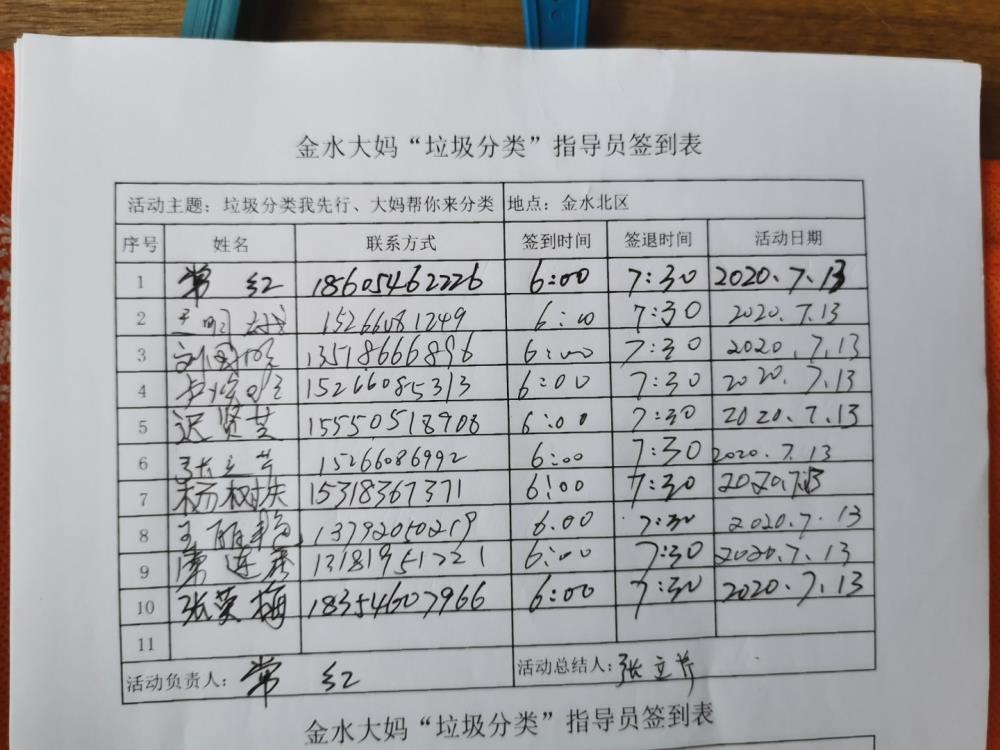 金水大妈“垃圾分类”指导员签到表
活动主题：垃圾分类我先行、大妈帮你来分类 地点：金水北区
序号 姓名 联系方式 签到时间 签退时间 活动日期
1 常红 18605462226 6:00 7:30 2020.7.13
2 15266081249 6:00 7:30 2020.7.13
3 13518666896 6:00 7:30 2020.7.13
4 15266085313 6:00 7:30 2020.7.13
5 迟贤芝 15550518908 6:00 7:30 2020.7.13
6 张立芹 15266086992 6:00 7:30 2020.7.13
7 杨树枝 15318367371 6:00 7:30 2020.7.13
8 13792050219 6.00 7:30 2020.7.13
9 13181951221 6:00 7:30 2020.7.13
10 张荣梅 18354607966 6:00 7:30 2020.7.13
11
活动负责人：常红 活动总结人：张立芹
金水大妈“垃圾分类”指导员签到表